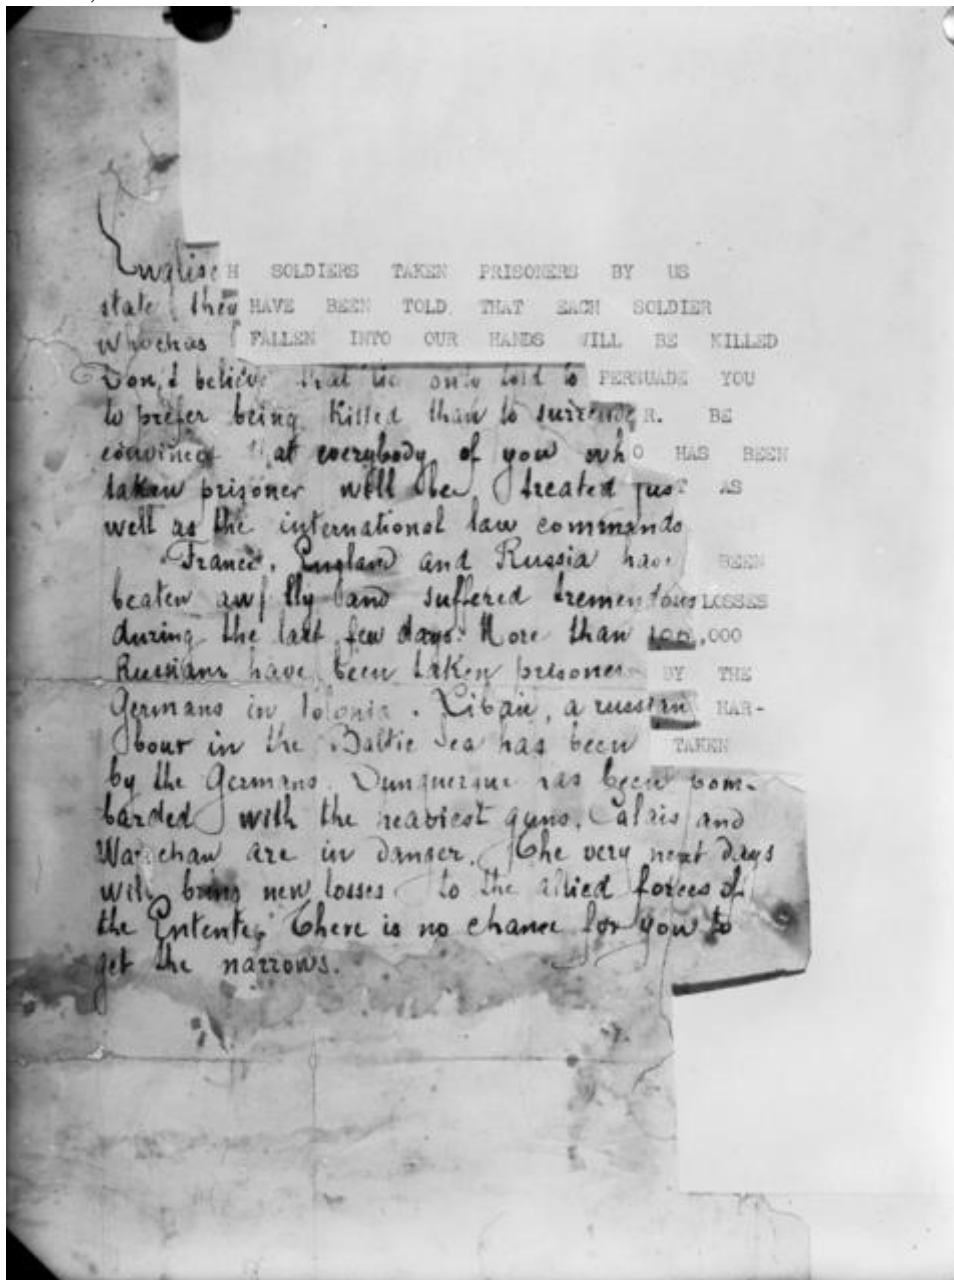 English SOLDIERS TAKEN PRISONERS BY US
state they HAVE BEEN TOLD THAT EACH SOLDIER
whochas FALLEN INTO OUR HANDS WILL BE KILLED
Don,t believe that tis only told to PERSUADE YOU
to prefer being killed than to surrendeR. BE
convinced that everybody of you whO HAS BEEN
taken prisoner will be treated jusT AS
well as the international law commands
France, England and Russia have BEEN
beaten awfully and suffered tremendous LOSSES
during the last few days. More than 100,000
Russians have been taken prisoners BY THE
Germans in Polonia. Libau, a russian HAR-
bour in the Baltic Sea has been TAKEN
by the Germans. Dunquerque has been bom-
barded with the heaviest guns. Calais and
Warschaw are in danger. The very next days
will bring new losses to the allied forces of
the Entente. There is no chance for you to
get the narrows.